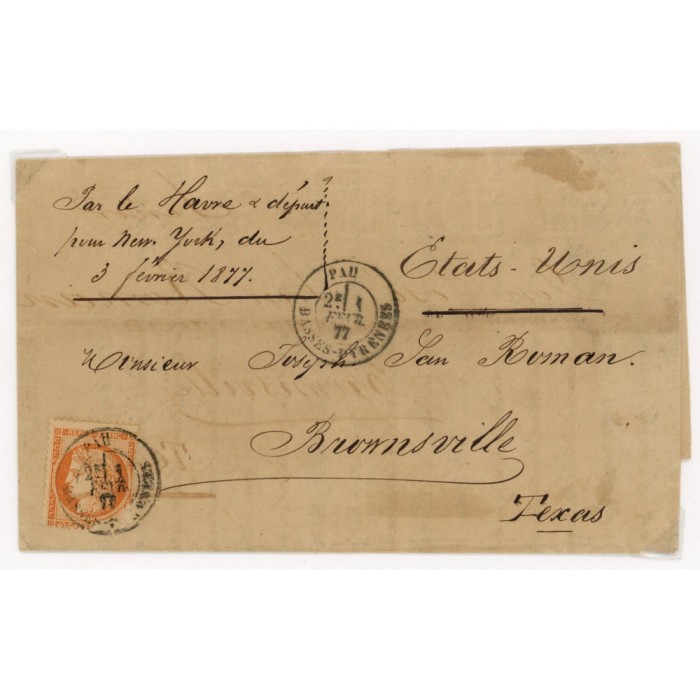 Par le Havre & départ
pour New-York, du
3 février 1877.
États-Unis
PAU
2E 1
FEVR
77
BASSES-PYRENEES
Monsieur Joseph San Roman.
Brownsville
Texas
PAU
2E 1
FEVR
77